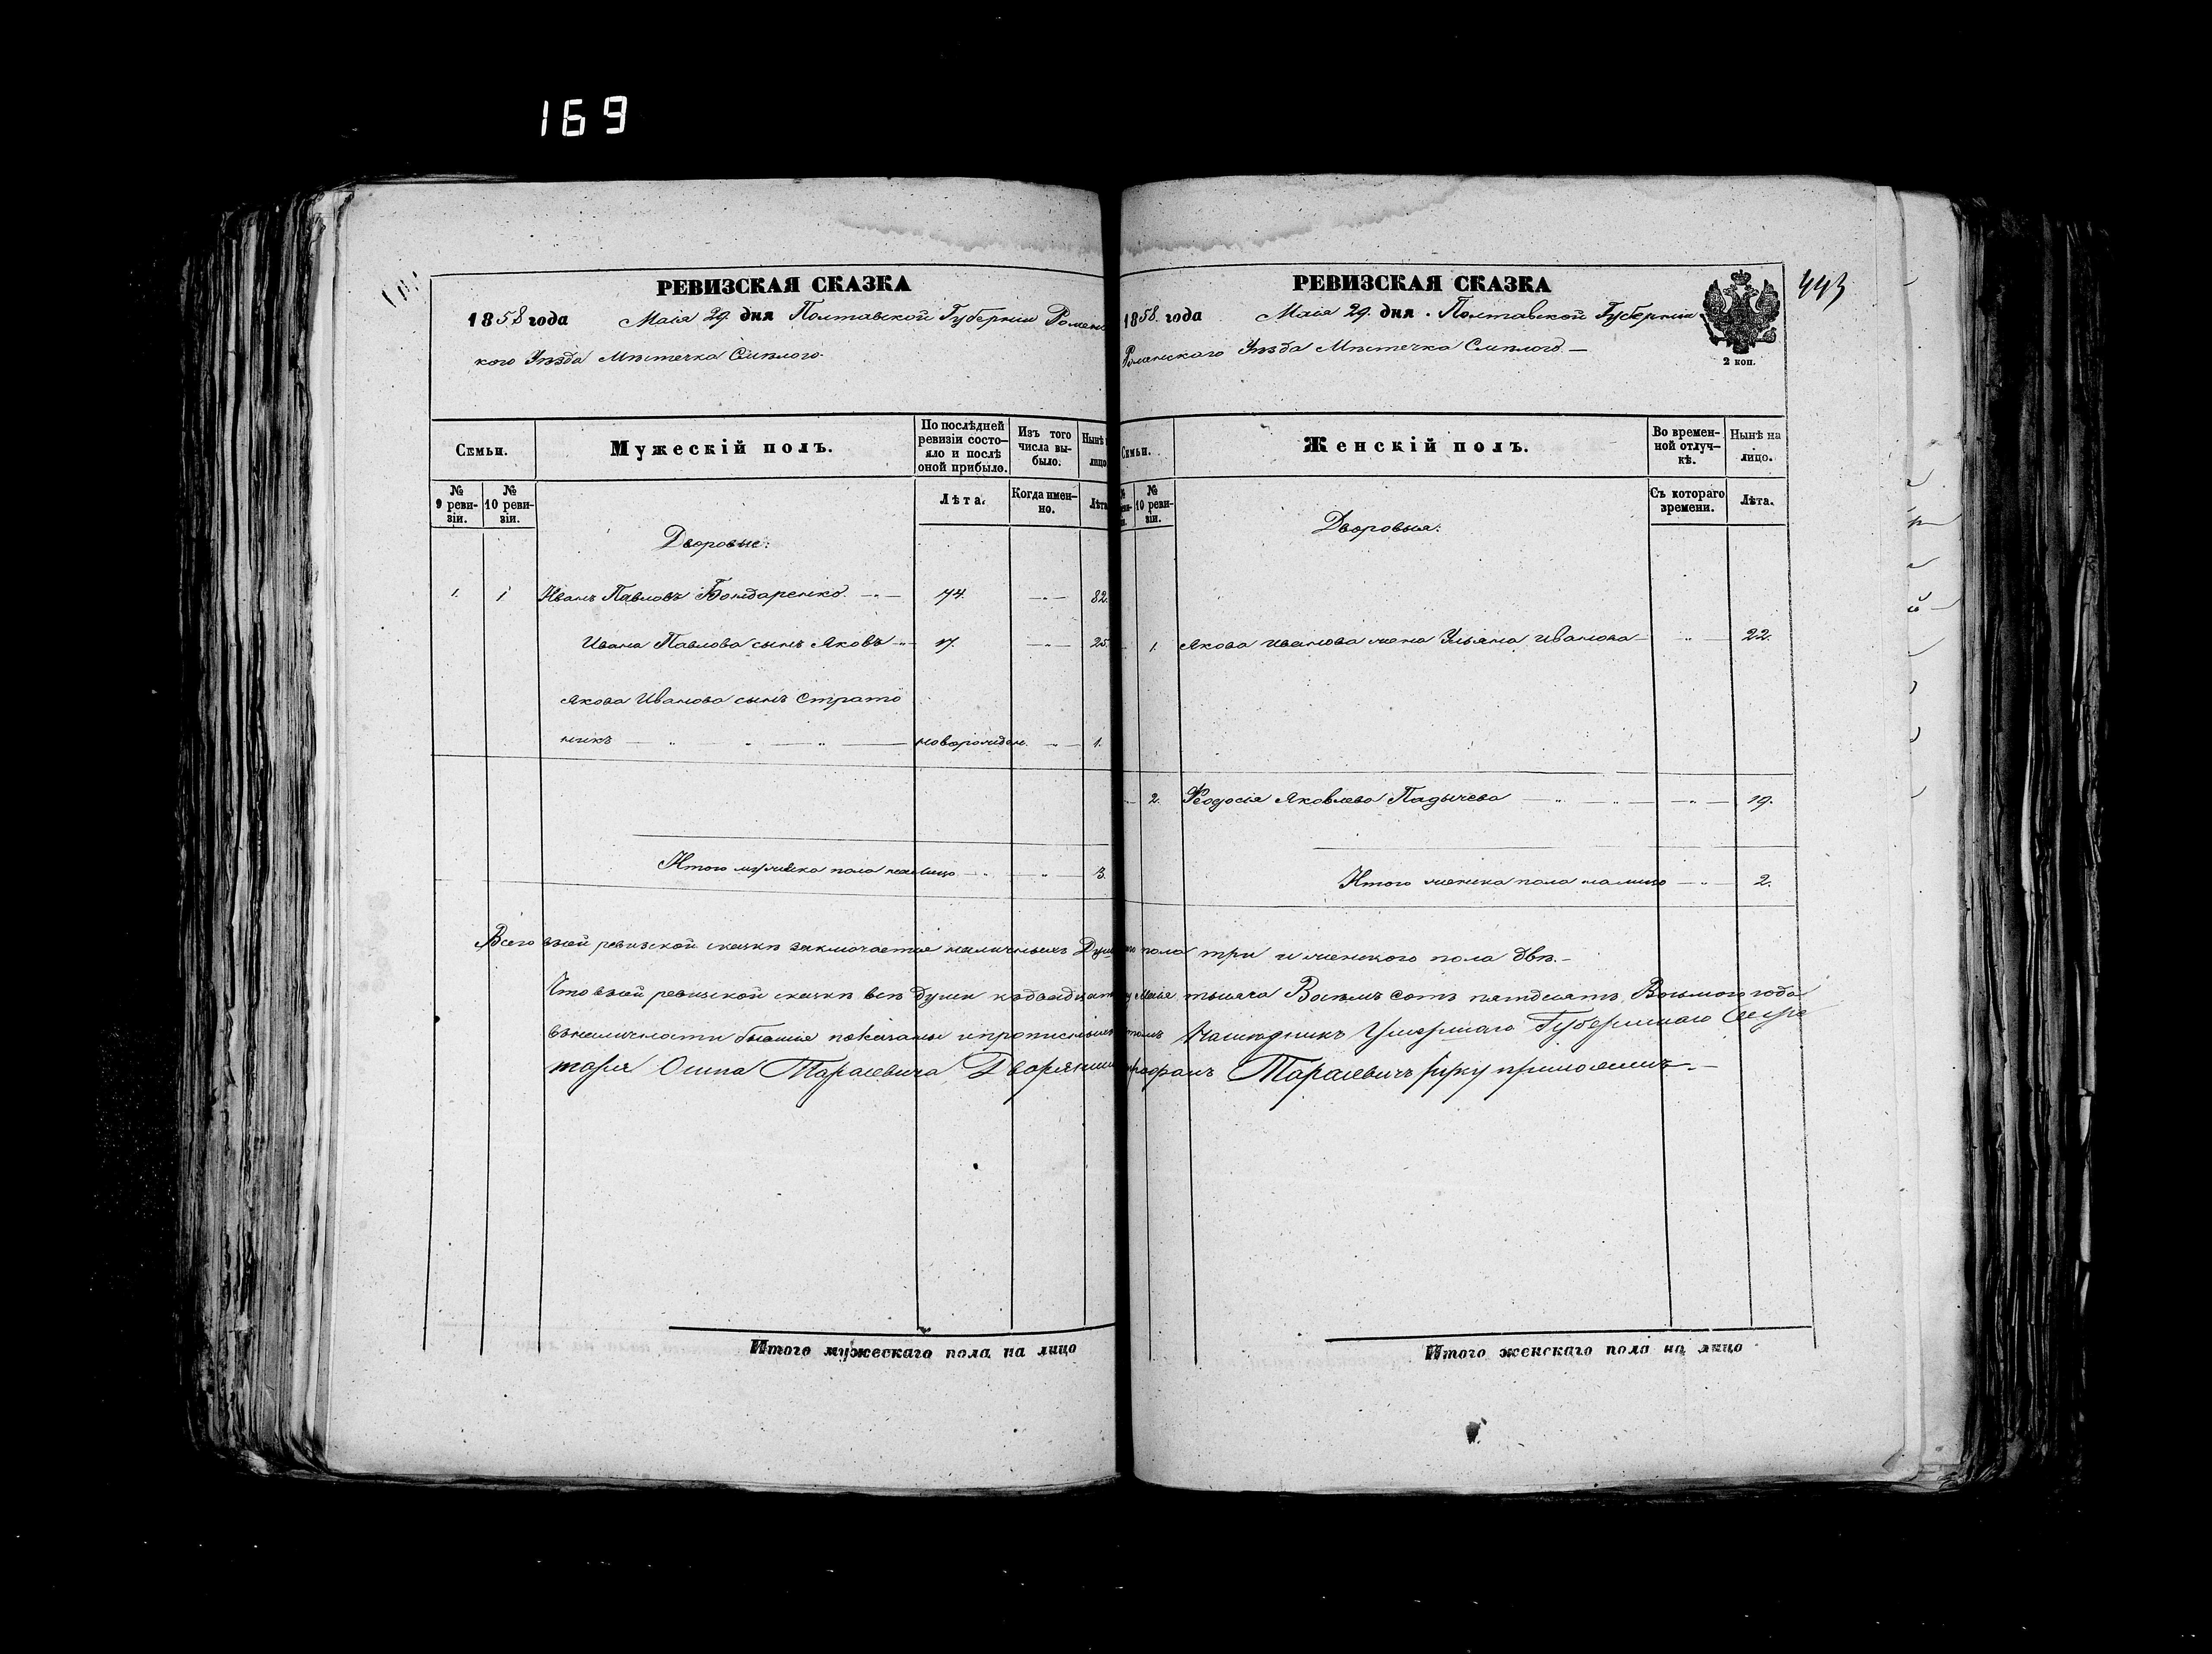 169
РЕВИЗСКАЯ СКАЗКА
1858 года Маія 29 дня Полтавской Губерніи Роменс
кого Уѣзда Мѣстечка Смѣлого.
Семьи.
Мужескій полъ.
По послѣдней ревизіи состо-
яло и послѣ оной прибыло.
Изъ того числа вы-
было.
Нынѣ
лицо
№ 9 реви-
зіи.
№ 10 реви-
зіи.
Лѣта.
Когда имен-
но.
Лѣта
Дворовые:
1. 1 Иванъ Павловъ Бондаренко. 74. 82.
Ивана Павлова сынъ Яковъ 17. 25.
Якова Иванова сынъ Страто
никъ новорожден. 1.
Итого мужеска пола налицо 3.
РЕВИЗСКАЯ СКАЗКА
1858. года Маія 29. дня. Полтавской Губерніи
Роменскаго Уѣзда Мѣстечка Смѣлого
2 коп.
443
Семьи.
Женскій полъ.
Во времен-
ной отлуч-
кѣ.
Нынѣ на
лицо.
№ 10 реви-
зіи.
Съ котораго
времени.
Лѣта.
Дворовыя:
1. Якова Иванова жена Ульяна Иванова 22.
2. Феодосія Яковлева Падычева 19.
Итого женска пола налицо 2.
Всего всей ревизской сказкѣ заключается наличныхъ Душ пола три и женского пола двѣ.
Что всей ревизской сказкѣ всѣ души къ двадцат Маія тысяча Восемь сотъ пятдесятъ Восьмого года
въ наличности бывшія показаны и прописныхъ Наслѣдникъ Умершаго Губернскаго Секре
таря Осипа Тарасевича, Дворянинъ Тарасевичъ руку приложилъ.
Итого мужескаго пола на лицо
Итого женскаго пола на лицо